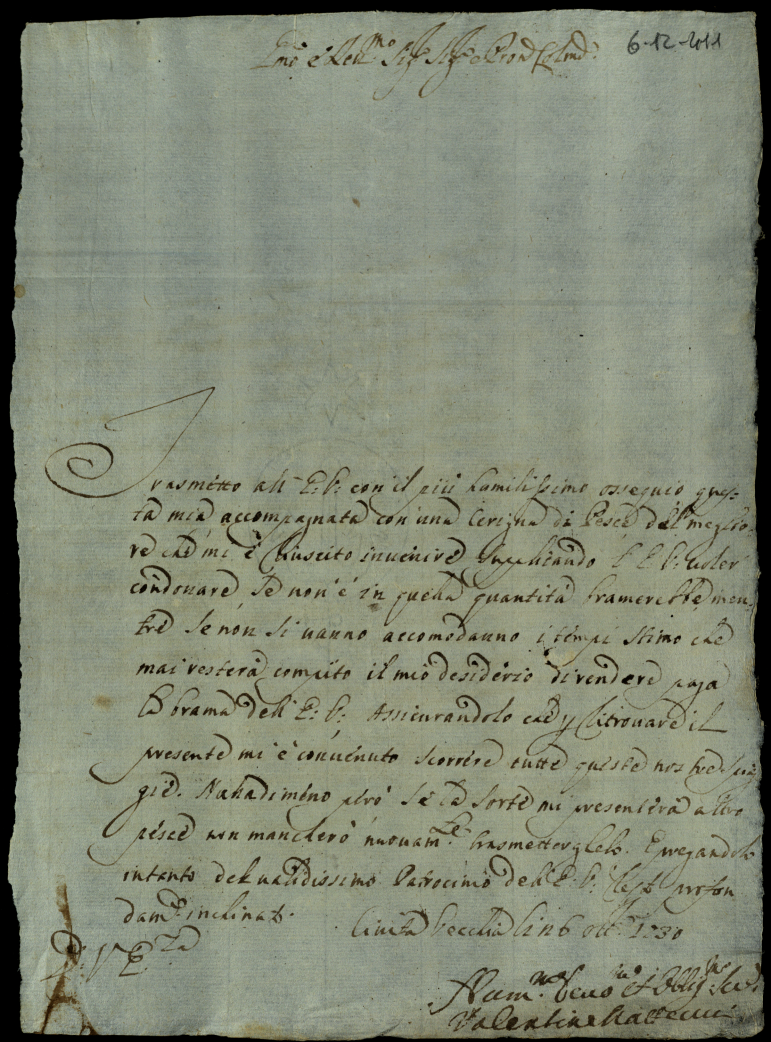 Emo e Reumo Sigr Sigr e Pron Colmo
6-12-2011
Trasmetto all' E: V: con il più humilissimo ossequio ques-
ta mia accompagnata con una di Pesce del meglio
re che mi è riuscito invenire supplicando l' E: V: voler
condonare se non è in quella quantità bramerebbe men-
tre se non si vanno accomodanno i tempi stimo che
mai resterà compito il mio desiderio di rendere paga
la brama dell' E: V: Assicurandolo che p ritrovare il
presente mi è convenuto scorrere tutte queste nostre spiag
gie. Nulladimeno però se la sorte mi presenterà altro
pesce non mancherò nuovamte trasmetterglelo. E pregandolo
intanto del validissimo Patrocinio dell' E: V: resto profon
damte inclinato.
Civita Vecchia li 6 ottre 1730
D: V: Eza
Hummo Devmo et Obblmo Serv
Valentino